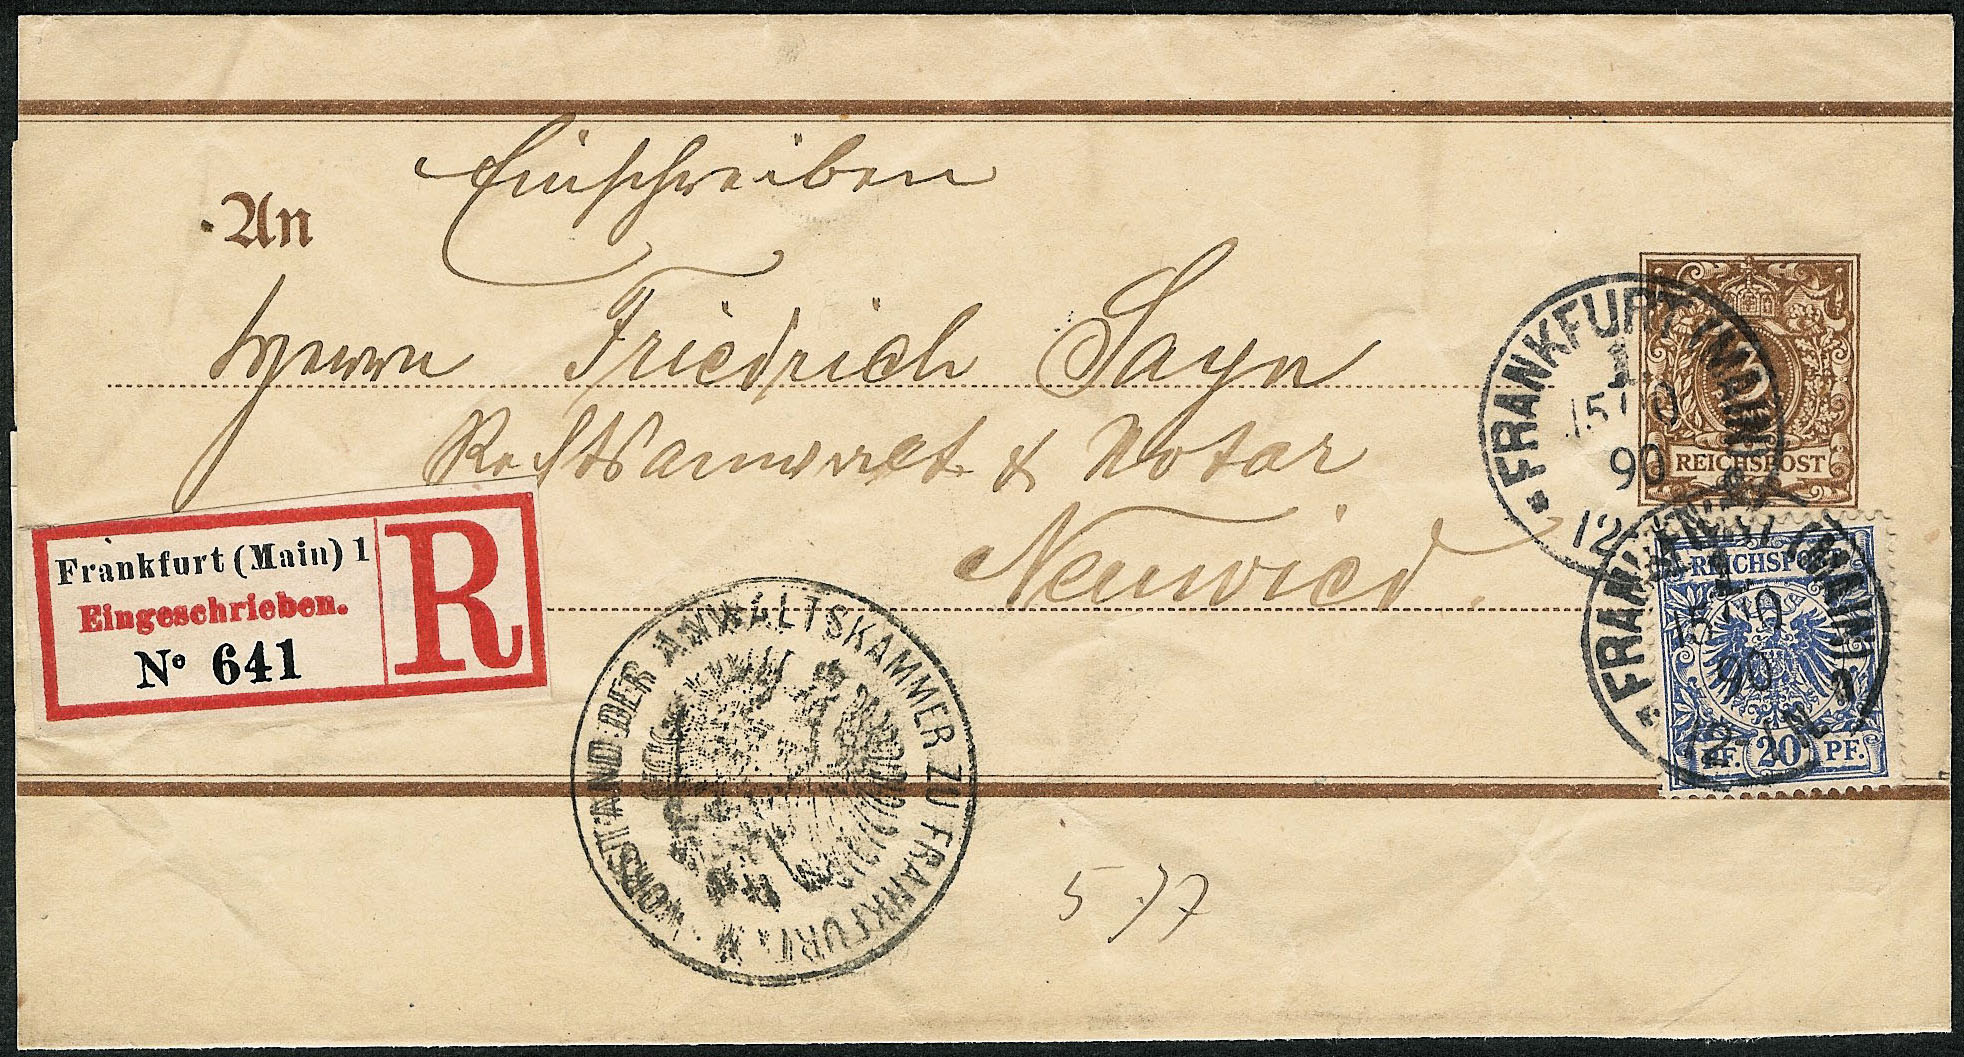 Einschreiben
An
Herrn Friedrich Sayn
Rechtsanwalt & Notar
Neuwied.
Frankfurt (Main) 1
Eingeschrieben.
No 641
R
VORSTAND DER ANWALTSKAMMER ZU FRANKFURT
FRANKFURT (MAIN)
1.
90
12
REICHSPOST
FRANKFURT (MAIN)
1.
90
REICHSPOST
PF. 20 PF.
577